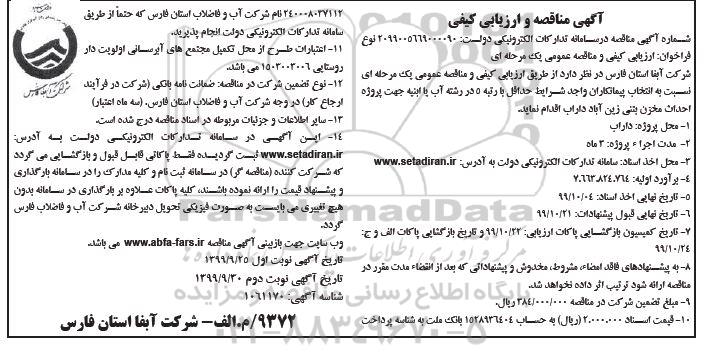 آگهی مناقصه و ارزیابی کیفی
شماره آگهی مناقصه درسامانه تدارکات الکترونیکی دولت: ۲۰۹۹۰۰۵۶۶۹۰۰۰۰۹۰ نوع
فراخوان: ارزیابی کیفی و مناقصه عمومی یک مرحله ای
شرکت آبفا استان فارس در نظر دارد از طریق ارزیابی کیفی و مناقصه عمومی یک مرحله ای
نسبت به انتخاب پیمانکاران واجد شرایط حداقل با رتبه ۵ در رشته آب یا ابنیه جهت پروژه
احداث مخزن بتنی زین آباد داراب اقدام نماید.
۱- محل پروژه: داراب
۲- مدت اجرا ء پروژه: ۲ ماه
۳- محل اخذ اسناد: سامانه تدارکات الکترونیکی دولت به آدرس: www.setadiran.ir
۴- برآورد اولیه: ۷.۶۶۳.۸۲۴.۷۶۴
۵- تاریخ نهایی اخذ اسناد: ۹۹/۱۰/۰۴
۶- تاریخ نهایی قبول پیشنهادات: ۹۹/۱۰/۲۱
۷- تاریخ کمیسیون بازگشایی پاکات ارزیابی: ۹۹/۱۰/۲۲ و تاریخ بازگشایی پاکات الف و ج:
۹۹/۱۰/۲۴
۸- به پیشنهادهای فاقد امضاء، مشروط، مخدوش و پیشنهاداتی که بعد از انقضاء مدت مقرر در
مناقصه ارائه شود ترتیب اثر داده نخواهد شد.
۹- مبلغ تضمین شرکت در مناقصه ۳۸۴/۰۰۰/۰۰۰ ریال.
۱۰- قیمت اسناد ۲.۰۰۰.۰۰۰ (ریال) به حساب ۱۵۲۸۹۳۶۴۰۴ بانک ملت به شناسه پرداخت
۲۴۰۰۰۸۰۳۷۱۱۲ نام شرکت آب و فاضلاب استان فارس که حتماً از طریق
سامانه تدارکات الکترونیکی دولت انجام پذیرید.
۱۱- اعتبارات طرح از محل تکمیل مجتمع های آبرسانی اولویت دار
روستایی ۱۵۰۳۰۰۳۰۰۶ می باشد.
۱۲- نوع تضمین شرکت در مناقصه: ضمانت نامه بانکی (شرکت در فرآیند
ارجاع کار) در وجه شرکت آب و فاضلاب استان فارس. (سه ماه اعتبار)
۱۳- سایر اطلاعات و جزئیات مربوطه در اسناد مناقصه درج شده است.
۱۴- این آگهی در سامانه تدارکات الکترونیکی دولت به آدرس:
www.setadiran.ir ثبت گردیده فقط پاکاتی قابل قبول و بازگشایی می گردد
که شرکت کننده (مناقصه گر) در سامانه ثبت نام و کلیه مدارک را در سامانه بارگذاری
و پیشنهاد قیمت را ارائه نموده باشند، کلیه پاکات علاوه بر بارگذاری در سامانه بدون
هیچ تغییری می بایست به صورت فیزیکی تحویل دبیرخانه شرکت آب و فاضلاب فارس
گردد.
وب سایت جهت بازبینی آگهی مناقصه www.abfa-fars.ir می باشد.
تاریخ آگهی نوبت اول ۱۳۹۹/۹/۲۵
تاریخ آگهی نوبت دوم ۱۳۹۹/۹/۳۰
شناسه آگهی: ۱۰۶۱۱۷۰
۹۳۷۲/م.الف- شرکت آبفا استان فارس